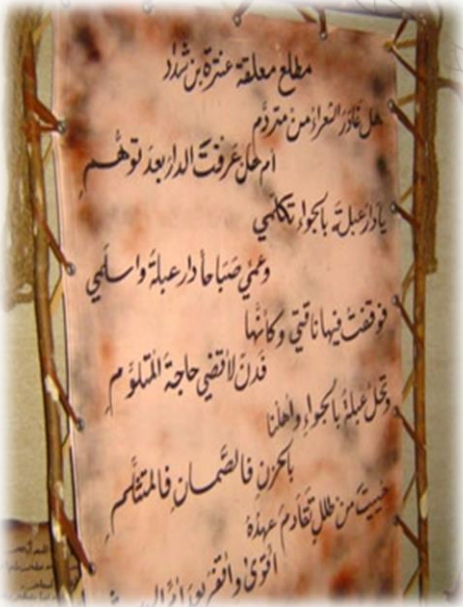 مطلع معلقة عنترة بن شداد
هل غادر الشعراء من متردم
أم هل عرفت الدار بعد توهم
يا دار عبلة بالجواء تكلمي
وعمي صباحا دار عبلة واسلمي
فوقفت فيها ناقتي وكأنها
فدن لأقضي حاجة المتلوم
وتحل عبلة بالجواء وأهلنا
بالحزن فالصمان فالمتثلم
حييت من طلل تقادم عهده
أقوى وأقفر بعد أم